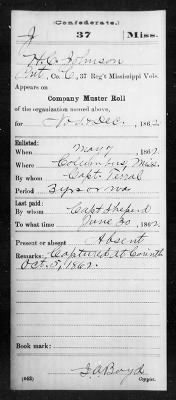 (Confederate.)
J 37 Miss.
H. C. Johnson
Pvt, Co. C, 37 Reg't Mississippi Vols.
Appears on
Company Muster Roll
of the organization named above,
for Nov & Dec, 1862.
Enlisted:
When May 9, 1862.
Where Columbus, Miss.
By whom Capt. Terral
Period 3 yrs or war
Last paid:
By whom Capt Sheperd
To what time June 30, 1862.
Present or absent Absent
Remarks: Captured at Corinth
Oct. 5, 1862.
Book mark:
J. A. Boyd
(642) Copyist.